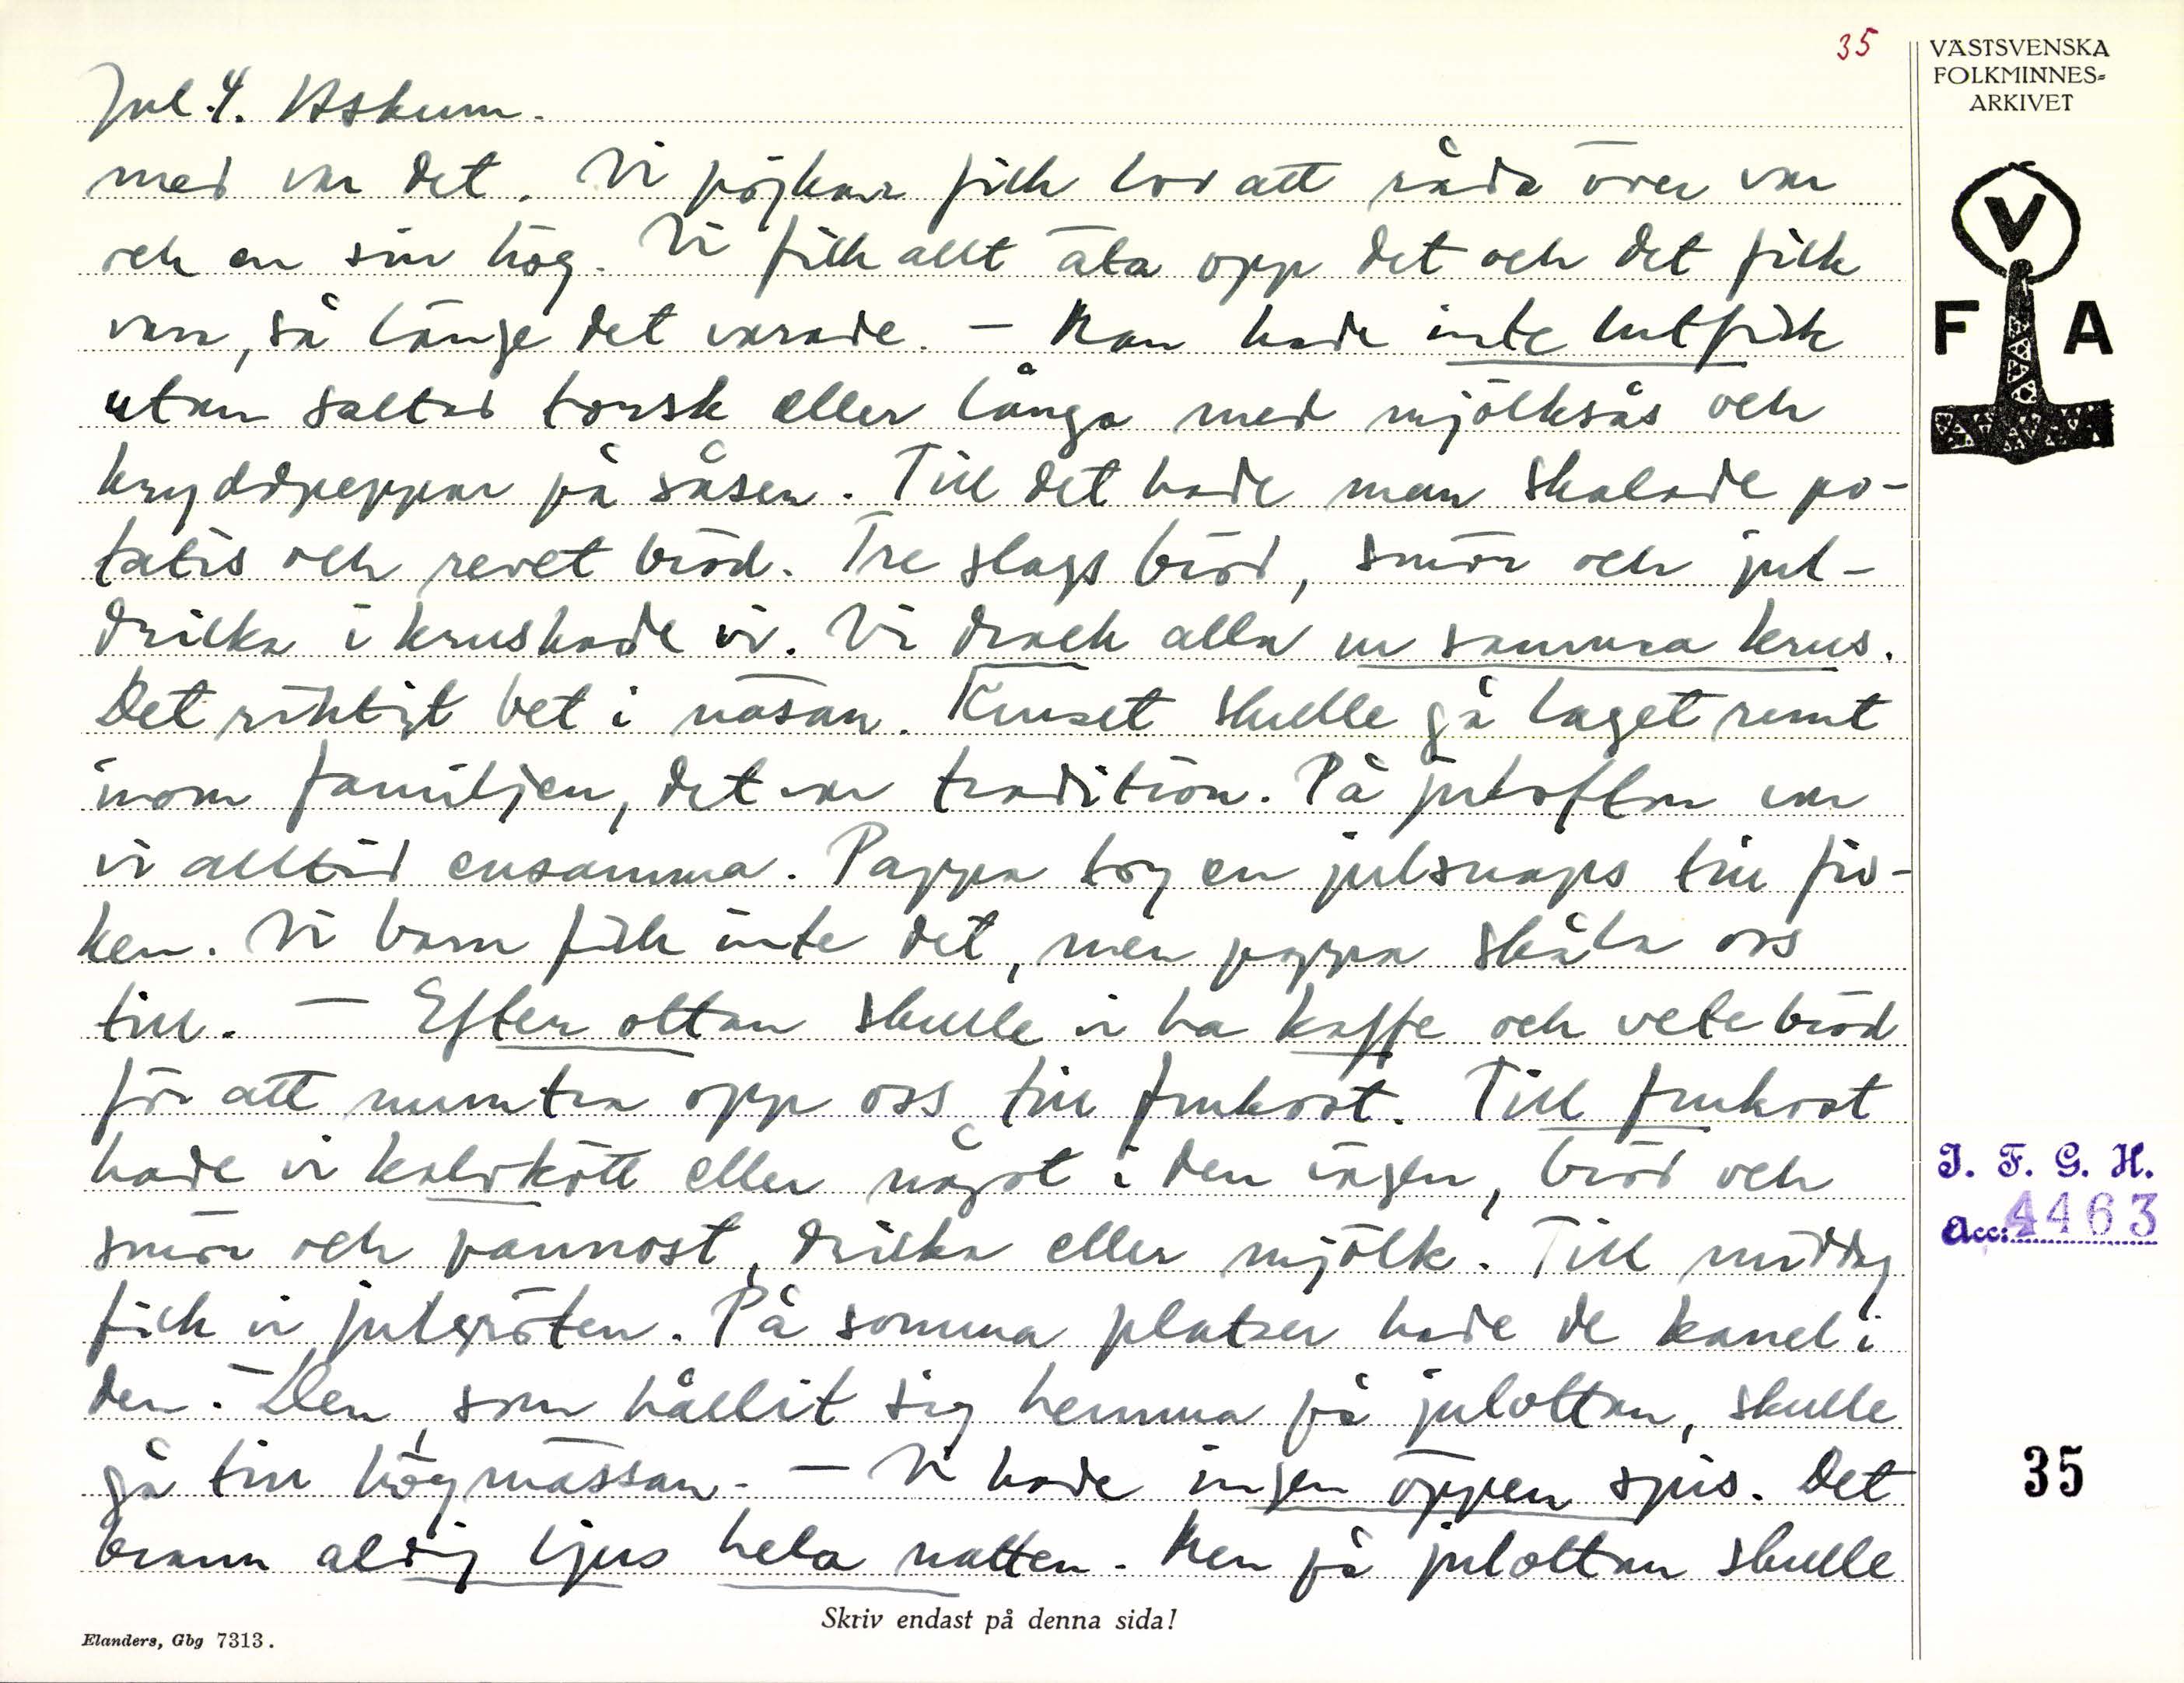 35
VÄSTSVENSKA
FOLKMINNES-
ARKIVET
V
F A
Jul 4. Askum.
med var det. Vi pöjkar fick lov att råda över var
och en sin hög. Vi fick allt äta opp det och det fick
vara, så länge det varade. – Man hade inte lutfisk
utan saltad torsk eller långa med mjölksås och
kryddpeppar på såsen. Till det hade man skalade po-
tatis och revet bröd. Tre slags bröd, smör och jul-
dricka i krus hade vi. Vi drack alla ur samma krus.
Det riktigt bet i näsan. Kruset skulle gå laget runt
inom familjen, det var tradition. På julafton var
vi alltid ensamma. Pappa tog en julsnaps till fis-
ken. Vi barn fick inte det, men pappa skåla oss
till. – Efter ottan skulle vi ha kaffe och vetebröd
för att muntra opp oss till frukost. Till frukost
hade vi kalvkött eller något i den vägen, bröd och
smör och pannost, dricka eller mjölk. Till middag
fick vi julgröten. På somma platser hade de kanel i
den. – Den, som hållit sig hemma på julottan, skulle
gå till högmässan. – Vi hade ingen öppen spis. Det
brann aldrig ljus hela natten. Men på julottan skulle
J. F. G. H.
Acc: 4463
35
Skriv endast på denna sida!
Elanders, Gbg 7313.